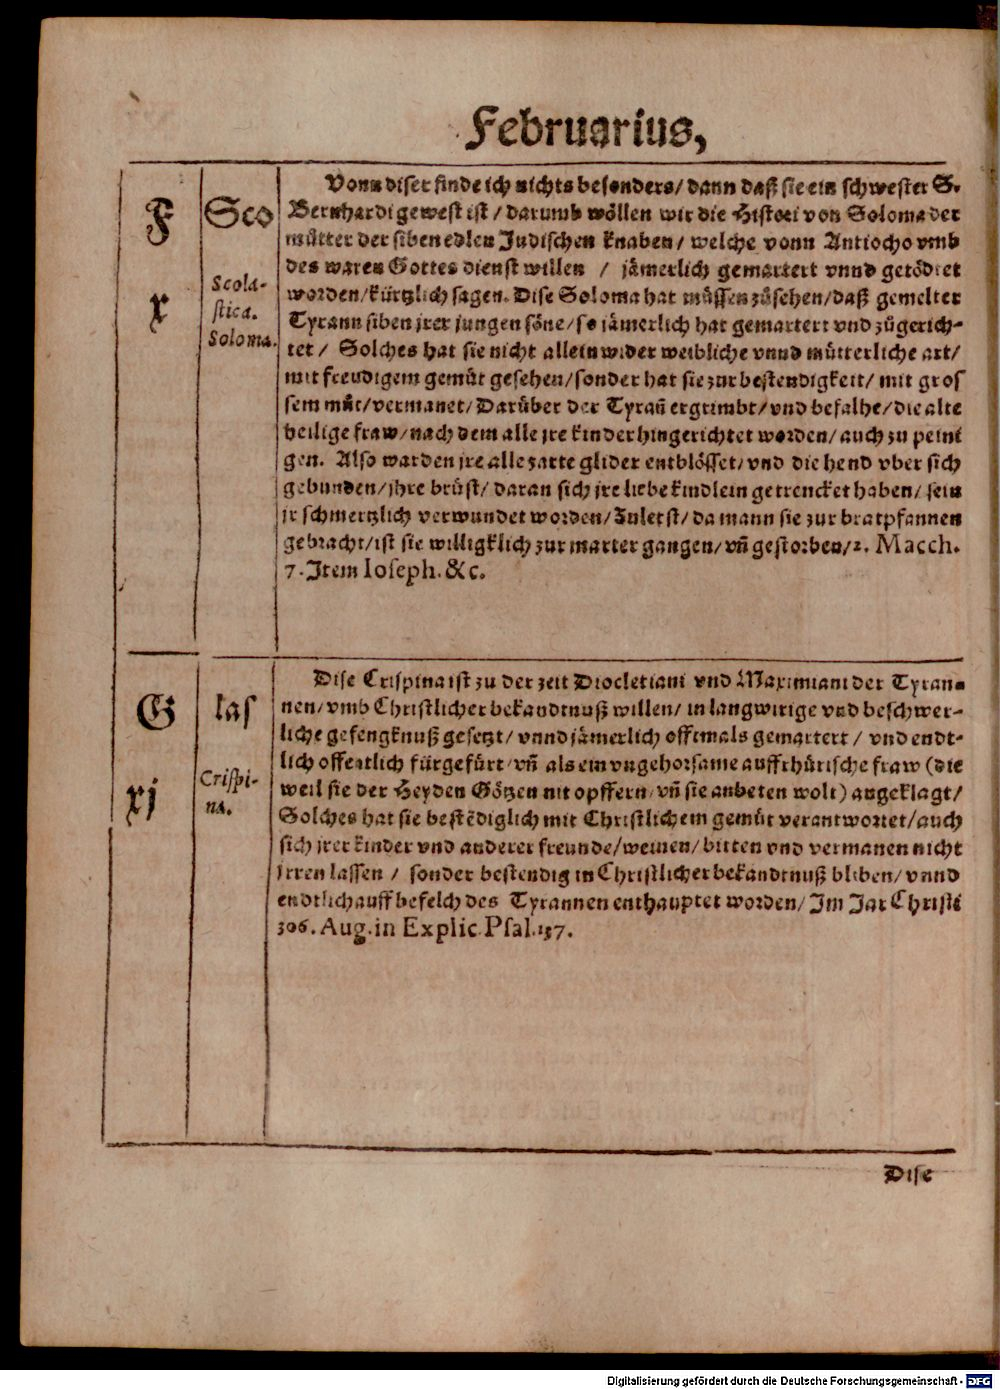 Februarius,
F
x
Sco
Scola-
stica.
Soloma.
Vonn diser finde ich nichts besonders/ dann daß sie ein schwester S.
Bernhardi gewest ist / darumb wöllen wir die Histori von Soloma der
můtter der siben edlen Jüdischen knaben/ welche vonn Antiocho vmb
des waren Gottes dienst willen / jämerlich gemartert vnnd getödtet
worden/kürtzlich sagen. Dise Soloma hat müssen zůsehen/daß gemelter
Tyrann siben jrer jungen söne/so jämerlich hat gemartert vnd zůgerich-
tet / Solches hat sie nicht allein wider weibliche vnnd můtterliche art/
mit freudigem gemůt gesehen/sonder hat sie zur bestendigkeit/ mit gros
sem můt/vermanet/ Darüber der Tyrañ ergrimbt/vnd befalhe/die alte
heilige fraw/nach dem alle jre kinder hingerichtet worden/auch zu peini
gen. Also warden jre alle zarte glider entblösset/vnd die hend vber sich
gebunden/jhre brüst/ daran sich jre liebe kindlein getrencket haben/ sein
jr schmertzlich verwundet worden/Zuletst/da mann sie zur bratpfannen
gebracht/ist sie willigklich zur marter gangen/vñ gestorben/2. Macch.
7. Item Ioseph. &c.
G
xj
las
Crispi-
na.
Dise Crispina ist zu der zeit Diocletiani vnd Maximiani der Tyran-
nen/vmb Christlicher bekandtnuß willen/ in langwirige vnd beschwer-
liche gefengknuß gesetzt/ vnnd jämerlich offtmals gemartert / vnd endt-
lich offentlich fürgefürt/vñ als ein vngehorsame auffrhürische fraw (die
weil sie der Heyden Götzen nit opffern/vñ sie anbeten wolt) angeklagt/
Solches hat sie bestēdiglich mit Christlichem gemůt verantwortet/auch
sich jrer kinder vnd anderer freunde/weinen/bitten vnd vermanen nicht
jrren lassen / sonder bestendig in Christlicher bekandtnuß bliben/ vnnd
endtlich auff befelch des Tyrannen enthauptet worden/ Im Jar Christi
306. Aug. in Explic. Psal. 137.
Dise
Digitalisierung gefördert durch die Deutsche Forschungsgemeinschaft - DFG